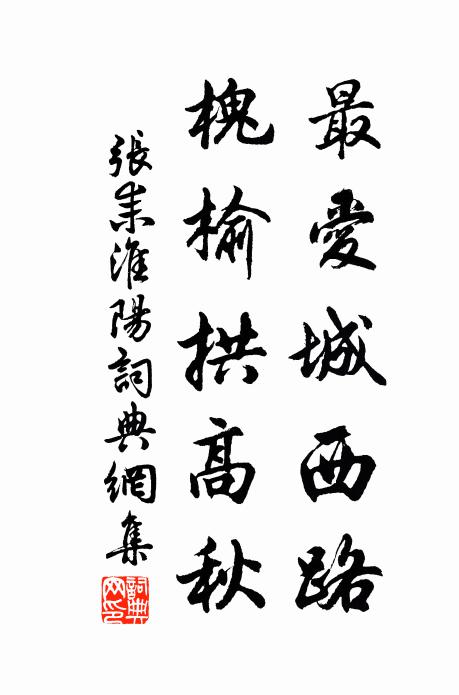 最愛城西路
槐榆拱高秋
張耒淮陽詞典網集
詞典網印